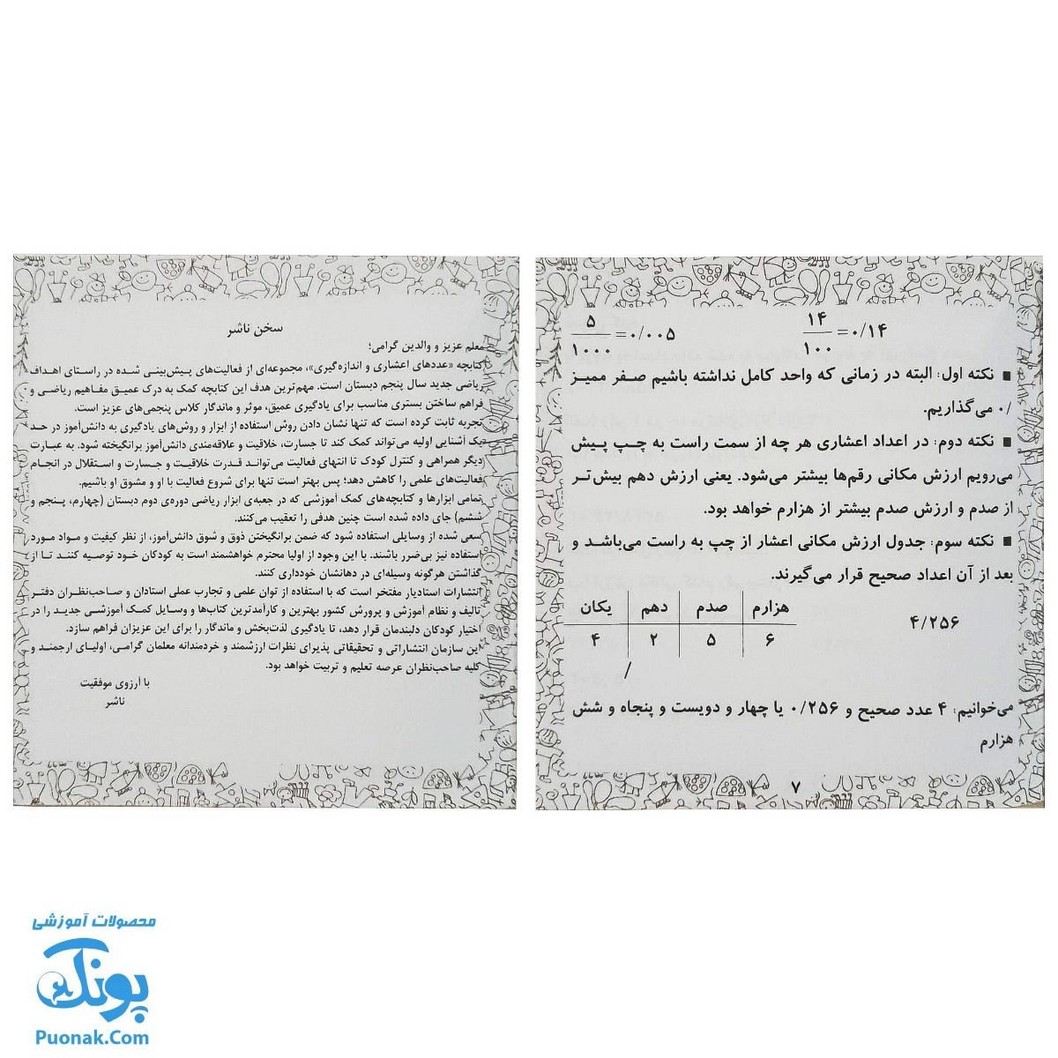 ۵/۱۰۰۰ =۰/۰۰۵ ۱۴/۱۰۰ =۰/۱۴
■ نکته اول: البته در زمانی که واحد کامل نداشته باشیم صفر ممیز
۰/ می‌گذاریم.
■ نکته دوم: در اعداد اعشاری هر چه از سمت راست به چپ پیش
می‌رویم ارزش مکانی رقم‌ها بیشتر می‌شود. یعنی ارزش دهم بیش‌تر
از صدم و ارزش صدم بیشتر از هزارم خواهد بود.
■ نکته سوم: جدول ارزش مکانی اعشار از چپ به راست می‌باشد و
بعد از آن اعداد صحیح قرار می‌گیرند.
یکان دهم صدم هزارم
۴ ۲ ۵ ۶
/
۴/۲۵۶
می‌خوانیم: ۴ عدد صحیح و ۰/۲۵۶ یا چهار و دویست و پنجاه و شش
هزارم
۷
سخن ناشر
معلم عزیز و والدین گرامی؛
کتابچه «عددهای اعشاری و اندازه‌گیری»، مجموعه‌ای از فعالیت‌های پیش‌بینی شده در راستای اهداف
ریاضی جدید سال پنجم دبستان است. مهم‌ترین هدف این کتابچه کمک به درک عمیق مفاهیم ریاضی و
فراهم ساختن بستری مناسب برای یادگیری عمیق، موثر و ماندگار کلاس پنجمی‌های عزیز است.
تجربه ثابت کرده است که تنها نشان دادن روش استفاده از ابزار و روش‌های یادگیری به دانش‌آموز در حد
یک آشنایی اولیه می‌تواند کمک کند تا جسارت، خلاقیت و علاقه‌مندی دانش‌آموز برانگیخته شود. به عبارت
دیگر همراهی و کنترل کودک تا انتهای فعالیت می‌تواند قدرت خلاقیت و جسارت و استقلال در انجام
فعالیت‌های علمی را کاهش دهد؛ پس بهتر است تنها برای شروع فعالیت با او و مشوق او باشیم.
تمامی ابزارها و کتابچه‌های کمک آموزشی که در جعبه‌ی ابزار ریاضی دوره‌ی دوم دبستان (چهارم، پنجم و
ششم) جای داده شده است چنین هدفی را تعقیب می‌کنند.
سعی شده از وسایلی استفاده شود که ضمن برانگیختن ذوق و شوق دانش‌آموز، از نظر کیفیت و مواد مورد
استفاده نیز بی‌ضرر باشند. با این وجود از اولیا محترم خواهشمند است به کودکان خود توصیه کنند تا از
گذاشتن هرگونه وسیله‌ای در دهانشان خودداری کنند.
انتشارات استادیار مفتخر است که با استفاده از توان علمی و تجارب عملی استادان و صاحب‌نظران دفتر
تالیف و نظام آموزش و پرورش کشور بهترین و کارآمدترین کتاب‌ها و وسایل کمک آموزشی جدید را در
اختیار کودکان دلبندمان قرار دهد، تا یادگیری لذت‌بخش و ماندگار را برای این عزیزان فراهم سازد.
این سازمان انتشاراتی و تحقیقاتی پذیرای نظرات ارزشمند و خردمندانه معلمان گرامی، اولیای ارجمند و
کلیه صاحب‌نظران عرصه تعلیم و تربیت خواهد بود.
با آرزوی موفقیت
ناشر
محصولات آموزشی
پونک
Puonak.Com